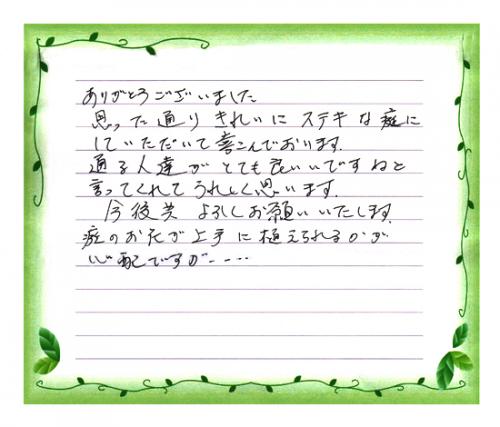 ありがとうございました
思った通りきれいにステキな庭に
していただいて喜こんでおります.
通る人達がとても良いですねと
言ってくれてうれしく思います.
今後共よろしくお願いいたします.
庭のお花が上手に植えられるかが
心配ですが‥‥